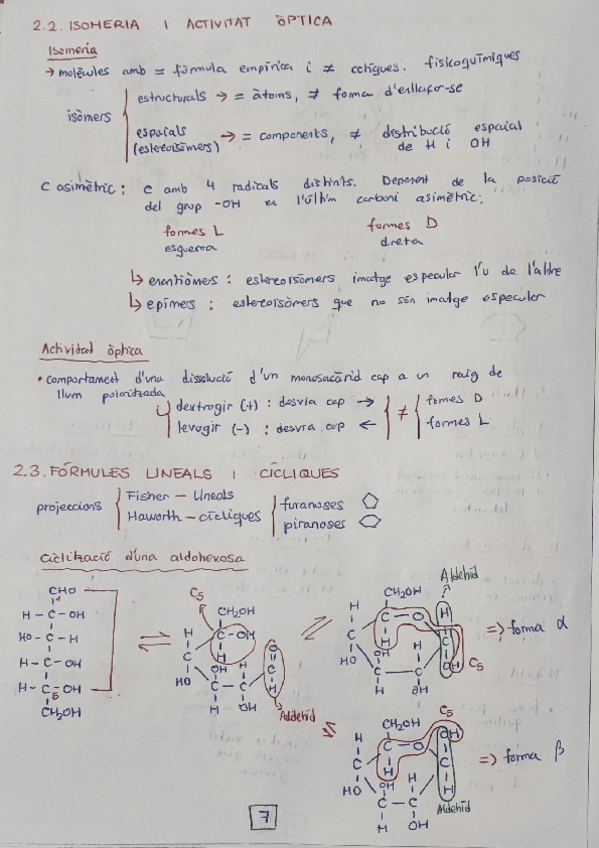 2.2. ISOMERIA I ACTIVITAT ÒPTICA
Isomeria
→ molècules amb = fórmula empírica i ≠ ctiques. fisicoquímiques
isòmers
estructurals → = àtoms, ≠ forma d'enllaçar-se
espaials → = components, ≠ distribució espaial
(estereoisòmers) de H i OH
C asimètric: C amb 4 radicals distints. Depenent de la posició
del grup -OH en l'últim carboni asimètric:
formes L formes D
esquerra dreta
↳ enantiòmers: estereoisòmers imatge especular l'u de l'altre
↳ epímers: estereoisòmers que no són imatge especular
Activitat òptica
• comportament d'una dissolució d'un monosacàrid cap a un raig de
llum polaritzada
dextrogir (+): desvia cap → ≠ formes D
levogir (-): desvia cap ← formes L
2.3. FÓRMULES LINEALS I CÍCLIQUES
projeccions
Fisher - lineals
Haworth - cícliques
furanoses
piranoses
Ciclització d'una aldohexosa
CHO
H - C - OH
HO - C - H
H - C - OH
H - C - OH
5
CH₂OH
⇌
C5
CH₂OH
H C - OH
C H
OH H O=C-H
HO C - C
H OH
Aldehid
⇌
Aldehid
CH₂OH
H C - O H
C H C
OH H OH C5
HO C - C
H OH
=> forma α
⇌
C5
CH₂OH OH
H C - O
C H C
OH H H
HO C - C
H OH
Aldehid
=> forma β
7